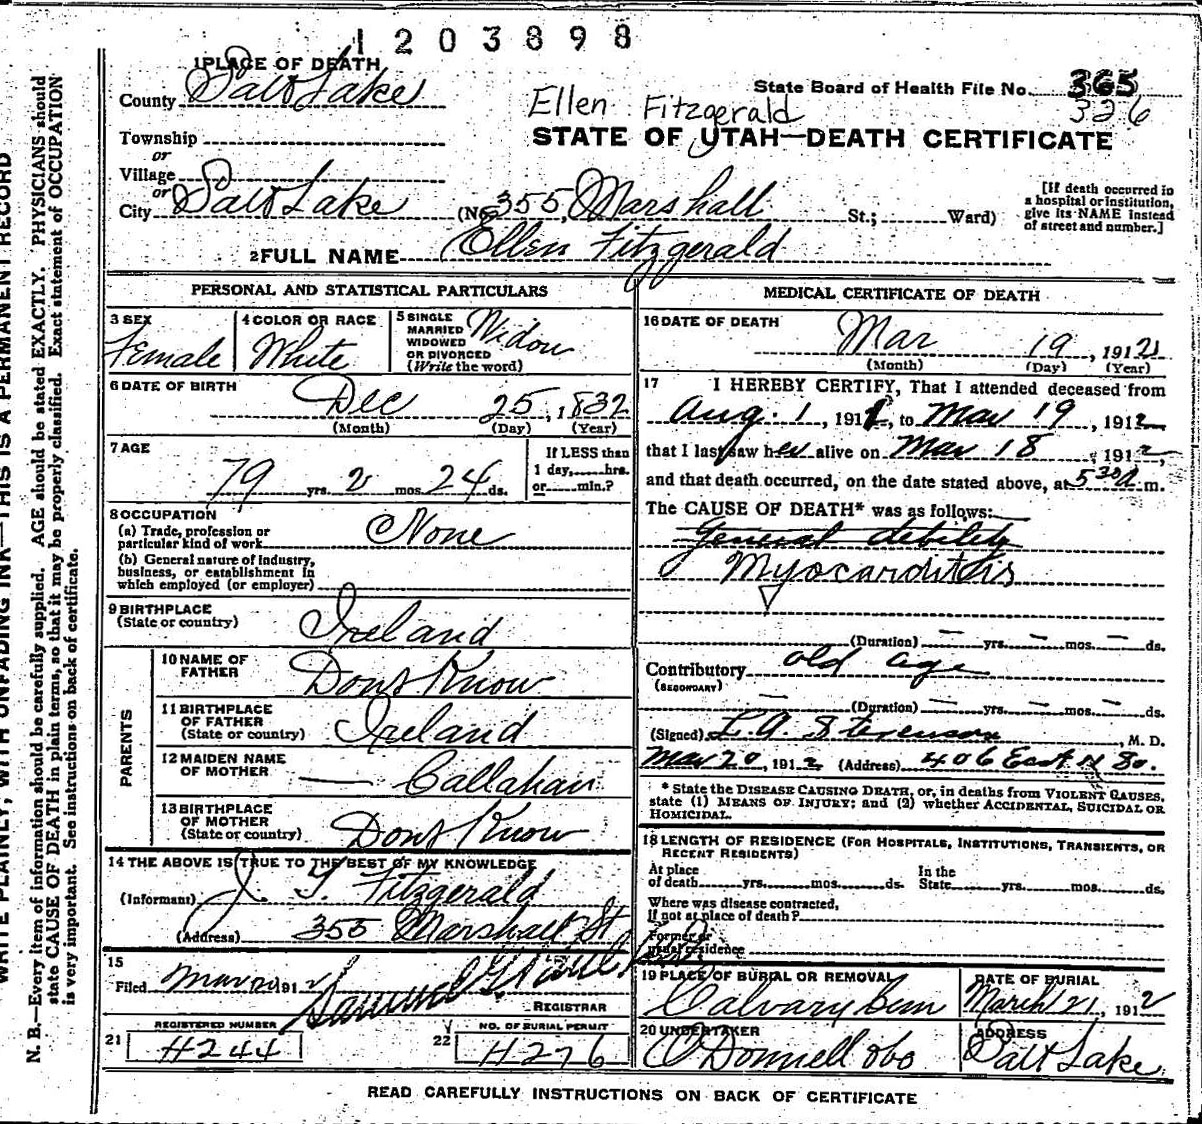 1203898
1 PLACE OF DEATH
County Salt Lake
State Board of Health File No. 365
326
Ellen Fitzgerald
STATE OF UTAH—DEATH CERTIFICATE
Township
or
Village
or
City Salt Lake (No. 355, Marshall St.; Ward)
[If death occurred in
a hospital or institution,
give its NAME instead
of street and number.]
2 FULL NAME Ellen Fitzgerald
PERSONAL AND STATISTICAL PARTICULARS
3 SEX
Female
4 COLOR OR RACE
White
5 SINGLE
MARRIED
WIDOWED
OR DIVORCED
(Write the word)
Widow
6 DATE OF BIRTH
Dec 25, 1832
(Month) (Day) (Year)
7 AGE
79 yrs. 2 mos. 24 ds.
If LESS than
1 day, hrs.
or min.?
8 OCCUPATION
(a) Trade, profession or
particular kind of work
None
(b) General nature of industry,
business, or establishment in
which employed (or employer)
9 BIRTHPLACE
(State or country)
Ireland
PARENTS
10 NAME OF
FATHER
Dont Know
11 BIRTHPLACE
OF FATHER
(State or country)
Ireland
12 MAIDEN NAME
OF MOTHER
— Callahan
13 BIRTHPLACE
OF MOTHER
(State or country)
Dont Know
14 THE ABOVE IS TRUE TO THE BEST OF MY KNOWLEDGE
(Informant) J. Fitzgerald
(Address) 355 Marshall St
15
Filed 191
Samuel G
REGISTRAR
21
REGISTERED NUMBER
H244
22
NO. OF BURIAL PERMIT
H276
MEDICAL CERTIFICATE OF DEATH
16 DATE OF DEATH
Mar 19, 1912
(Month) (Day) (Year)
17 I HEREBY CERTIFY, That I attended deceased from
Aug. 1, 191 , to Mar 19, 1912,
that I last saw her alive on Mar 18, 1912,
and that death occurred, on the date stated above, at 530 A.m.
The CAUSE OF DEATH* was as follows:
General debility
Myocarditis
(Duration) — yrs. — mos. — ds.
Contributory old age
(SECONDARY)
(Duration) — yrs. — mos. — ds.
(Signed) L. A. Stevenson, M. D.
Mar 20, 1912 (Address) 406 East So.
* State the DISEASE CAUSING DEATH, or, in deaths from VIOLENT CAUSES,
state (1) MEANS OF INJURY; and (2) whether ACCIDENTAL, SUICIDAL OR
HOMICIDAL.
18 LENGTH OF RESIDENCE (FOR HOSPITALS, INSTITUTIONS, TRANSIENTS, OR
RECENT RESIDENTS)
At place
of death yrs. mos. ds.
In the
State yrs. mos. ds.
Where was disease contracted,
If not at place of death?
Former or
usual residence
19 PLACE OF BURIAL OR REMOVAL
Calvary Cem
DATE OF BURIAL
March 21, 1912
20 UNDERTAKER
O'Donnell
ADDRESS
Salt Lake
READ CAREFULLY INSTRUCTIONS ON BACK OF CERTIFICATE
WRITE PLAINLY, WITH UNFADING INK—THIS IS A PERMANENT RECORD
N. B.—Every item of information should be carefully supplied. AGE should be stated EXACTLY. PHYSICIANS should
state CAUSE OF DEATH in plain terms, so that it may be properly classified. Exact statement of OCCUPATION
is very important. See instructions on back of certificate.